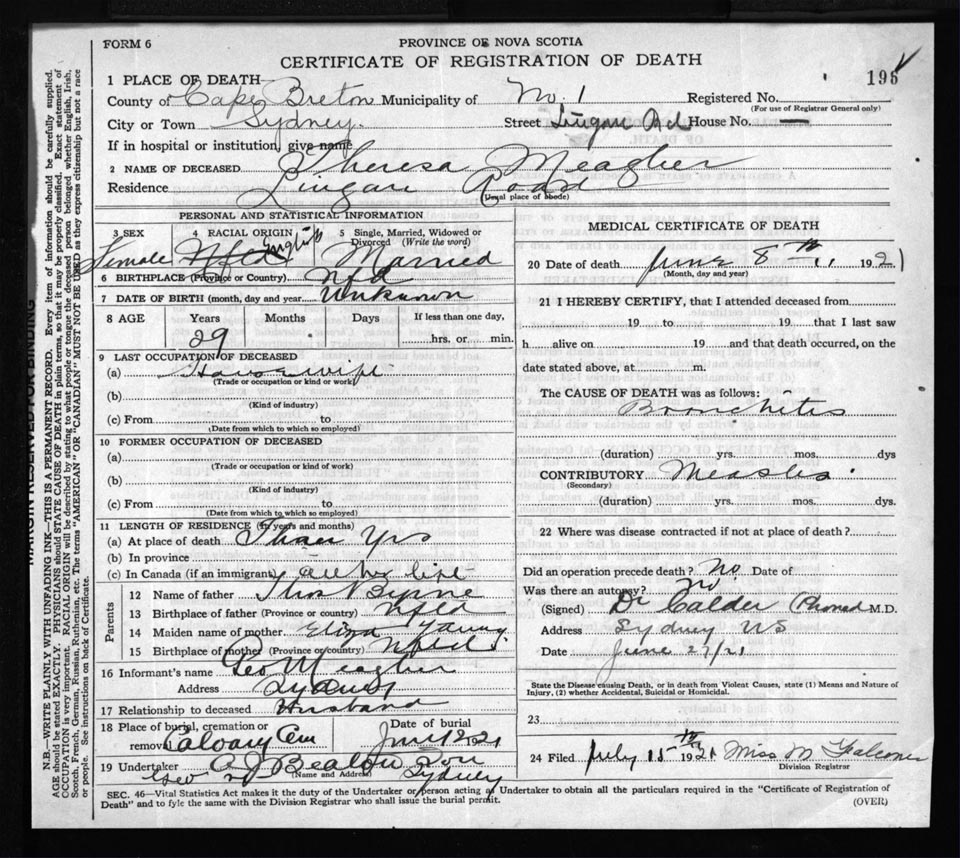 FORM 6
PROVINCE OF NOVA SCOTIA
CERTIFICATE OF REGISTRATION OF DEATH
195
1 PLACE OF DEATH
County of Cape Breton Municipality of No. 1 Registered No.
(For use of Registrar General only)
City or Town Sydney. Street Lingan Rd House No. —
If in hospital or institution, give name
2 NAME OF DECEASED Theresa Meagher
Residence Lingan Road
(Usual place of abode)
PERSONAL AND STATISTICAL INFORMATION
3 SEX 4 RACIAL ORIGIN 5 Single, Married, Widowed or Divorced (Write the word)
Female Nfld English Married
6 BIRTHPLACE (Province or Country) Nfd
7 DATE OF BIRTH (month, day and year) Unknown
8 AGE Years Months Days If less than one day,
29 hrs. or min.
9 LAST OCCUPATION OF DECEASED
(a) Housewife
(Trade or occupation or kind of work)
(b)
(Kind of industry)
(c) From to
(Date from which to which so employed)
10 FORMER OCCUPATION OF DECEASED
(a)
(Trade or occupation or kind of work)
(b)
(Kind of industry)
(c) From to
(Date from which to which so employed)
11 LENGTH OF RESIDENCE (In years and months)
(a) At place of death Yrs
(b) In province
(c) In Canada (if an immigrant) all her life
Parents
12 Name of father Thos Byrne
13 Birthplace of father (Province or country) Nfld
14 Maiden name of mother Eliza Young
15 Birthplace of mother (Province or country) Nfld
16 Informant's name Geo Meagher
Address Sydney
17 Relationship to deceased Husband
18 Place of burial, cremation or removal Calvary Cem
Date of burial June 12 1921
19 Undertaker A J Beaton Son
(Name and Address)
Geo Sydney
MEDICAL CERTIFICATE OF DEATH
20 Date of death June 8th 1921
(Month, day and year)
21 I HEREBY CERTIFY, that I attended deceased from
19 to 19 that I last saw
h alive on 19 and that death occurred, on the
date stated above, at m.
The CAUSE OF DEATH was as follows:
Bronchites
(duration) yrs. mos. dys
CONTRIBUTORY Measles
(Secondary)
(duration) yrs. mos. dys.
22 Where was disease contracted if not at place of death?
Did an operation precede death? No Date of
Was there an autopsy? No
(Signed) Dr Calder (Phoned M.D.
Address Sydney NS
Date June 27/21
State the Disease causing Death, or in death from Violent Causes, state (1) Means and Nature of
Injury, (2) whether Accidental, Suicidal or Homicidal.
23
24 Filed July 15th 1921 Miss M Falconer
Division Registrar
SEC. 46—Vital Statistics Act makes it the duty of the Undertaker or person acting as Undertaker to obtain all the particulars required in the "Certificate of Registration of
Death" and to fyle the same with the Division Registrar who shall issue the burial permit.
(OVER)
MARGIN RESERVED FOR BINDING
N.B.—WRITE PLAINLY WITH UNFADING INK—THIS IS A PERMANENT RECORD. Every item of information should be carefully supplied.
AGE should be stated EXACTLY. PHYSICIANS should STATE CAUSE OF DEATH in plain terms, so that it may be properly classified. Exact statement of
OCCUPATION is very important. RACIAL ORIGIN will be described by stating to what people or tongue the deceased person belonged whether English, Irish,
Scotch, French, German, Russian, Ruthenian, etc. The terms "AMERICAN" OR "CANADIAN" MUST NOT BE USED as they express citizenship but not a race
or people. See instructions on back of Certificate.